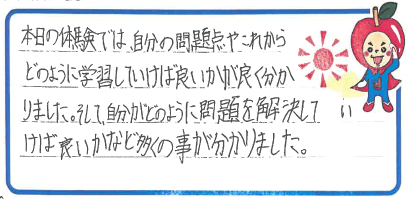 本日の体験では、自分の問題点やこれから
どのように学習していけば良いかが良く分か
りました。そして、自分がどのように問題を解決してい
けば良いかなど多くの事が分かりました。